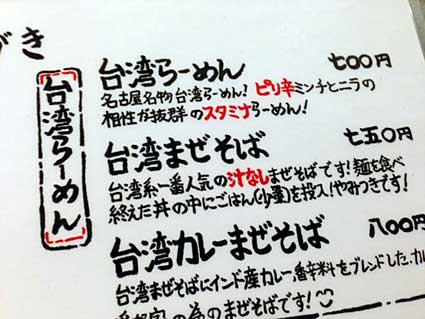 づき
台湾らーめん
台湾らーめん 七〇〇円
名古屋名物台湾らーめん! ピリ辛ミンチとニラの
相性が抜群のスタミナらーめん!
台湾まぜそば 七五〇円
台湾系一番人気の汁なしまぜそばです!麺を食べ
終えた丼の中にごはん(少量)を投入!やみつきです!
台湾カレーまぜそば 八〇〇円
台湾まぜそばにインド産カレー香辛料をブレンドした、カル
の為のまぜそばです!